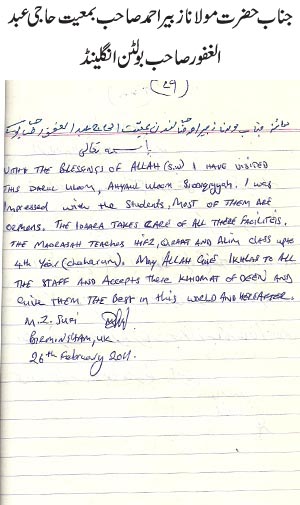 جناب حضرت مولانا زبیر احمد صاحب بمعیت حاجی عبد
الغفور صاحب بولٹن انگلینڈ
(29)
باسمہ تعالی
WITH THE BLESSINGS OF ALLAH (S.W) I HAVE VISITED
THIS DARUL ULOOM, ULOOM SIDDIQIYYAH. I WAS
IMPRESSED WITH THE STUDENTS, MOST OF THEM ARE
ORPHANS. THE IDAARA TAKES CARE OF ALL THERE FACILITIES.
THE MADRASAH TEACHES HIFZ, QIRAAT AND ALIM CLASS UPTO
4th YEAR (chaharum). MAY ALLAH GIVE IKHLAS TO ALL
THE STAFF AND ACCEPTS THEIR KHIDMAT OF DEEN AND
GIVE THEM THE BEST IN THIS WORLD AND HEREAFTER.
M. Z. SURI
BIRMINGHAM, UK.
26th February 2011.